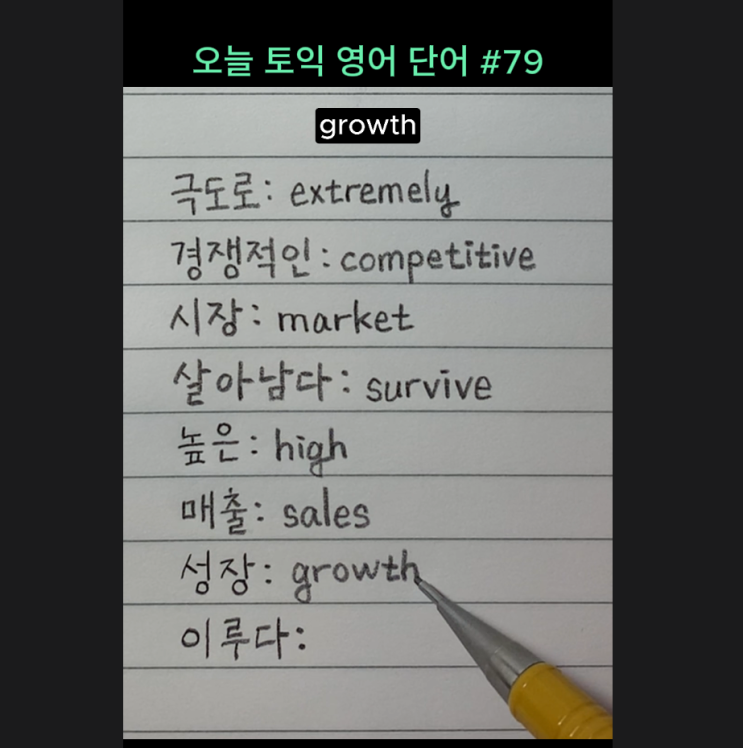 오늘 토익 영어 단어 #79
growth
극도로: extremely
경쟁적인: competitive
시장: market
살아남다: survive
높은: high
매출: sales
성장: growth
이루다: